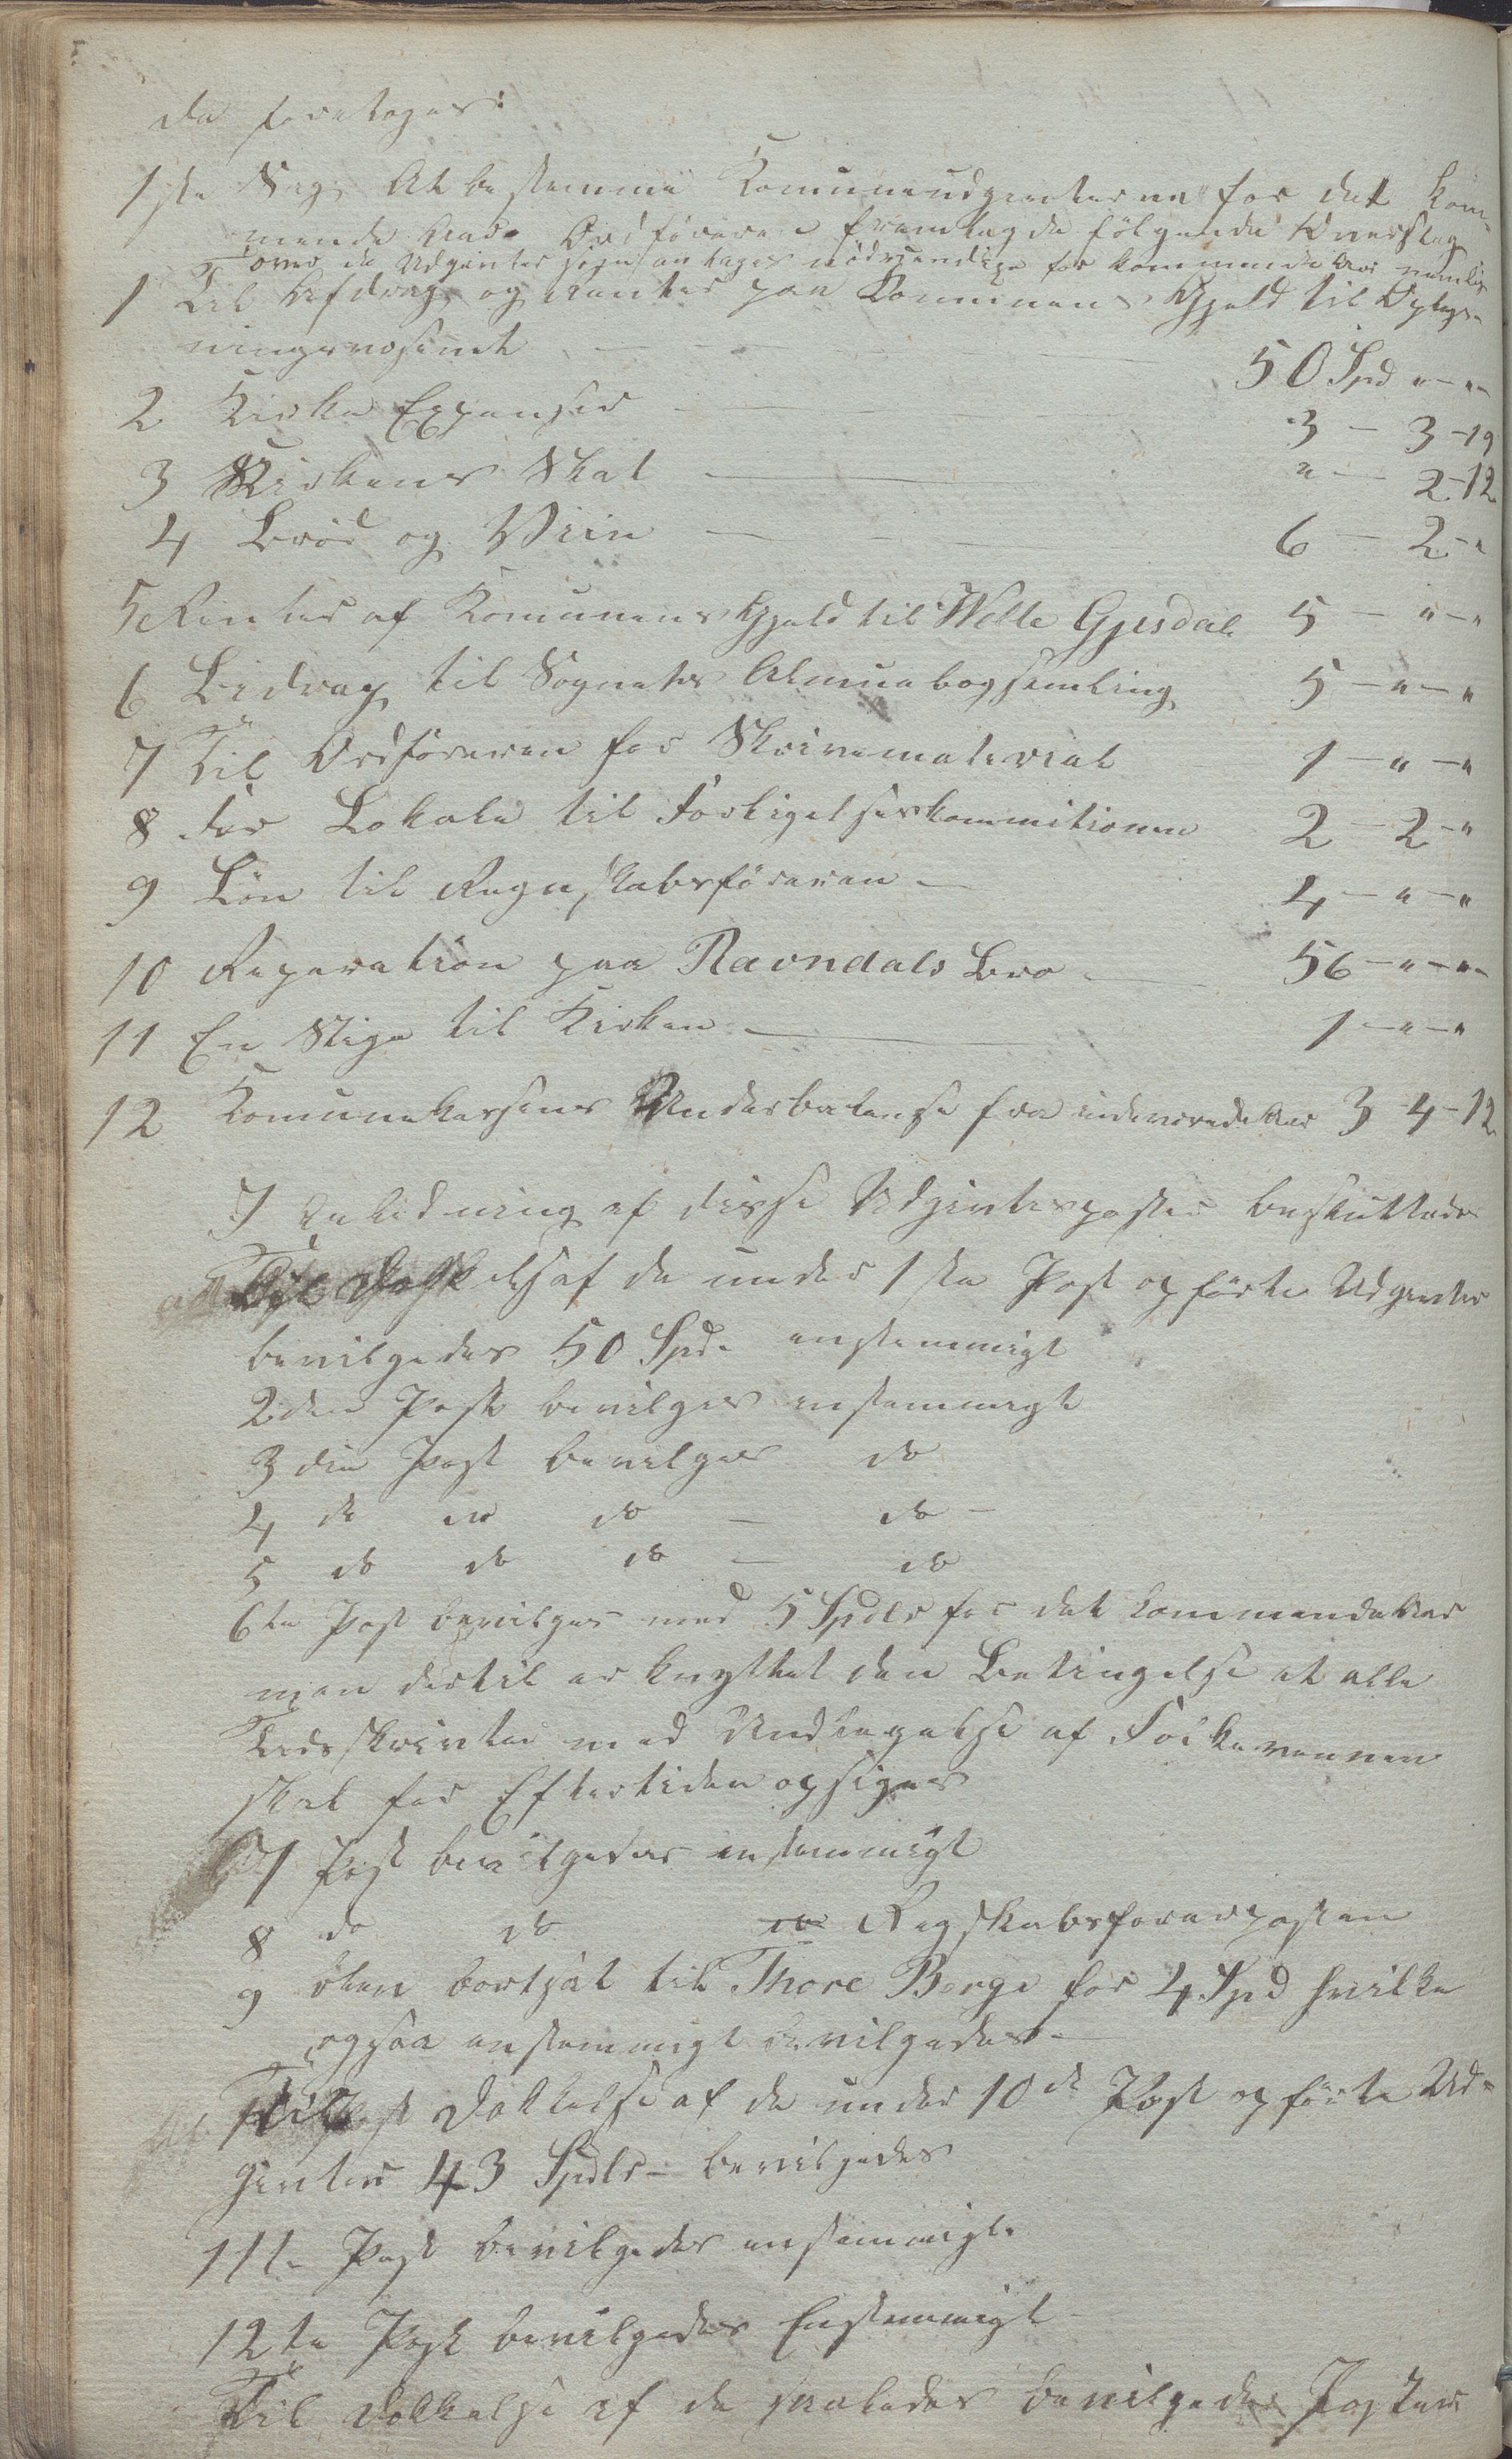 da foretoges:
1ste Sag At bestemme Komuneudgivterne for det kom-
mende Aar. Ordföreren fremlagde fölgende Overslag
over de Udgivter som antages nödvendige for kommende Aar nemlig
1 Til Afdrag og Renter paa Komunens Gjeld til Oplys-
ningsvæsenet — — — 50 Spd "-"-
2 Kirke Expenser — — 3 - 3-19
3 Kirkens Skat — — " - 2-12
4 Bröd og Viin — — 6 - 2-"
5 Renter af Komunens Gjeld til Welle Gjesdal 5 - "-"
6 Bidrag til Sognets Almuebogsamling 5 -"-"
7 Til Ordföreren for Skrivematerial 1 -"-"
8 For Lokale til Forligelseskommitionen 2 - 2-"
9 Lön til Regnskabsföreren — 4 -"-"
10 Reparation paa Ravndals Bro — 56 -"-"-
11 En Stige til Kirken — 1 -"-"
12 Komunekassens Underbalanse fra indeværende Aar 3-4-12
I Anledning af disse Udgivtsposter besluttedes
Til Dækkelse af de under 1ste Post opförte Udgivter
bevilgedes 50 Spd. enstemmigt
2den Post bevilges enstemmigt
3die Post bevilges do
4 do do do — do -
5 do do do — do
6te Post bevilges med 5 Spdlr for det kommende Aar
men dertil er knyttet den Betingelse at alle
Tidsskrivter med Undtagelse af Folkevennen
skal for Eftertiden opsiges
7 Post bevilgedes enstemmigt
8 do do do Regskabsforerposten
9 blev bortsat til Thore Berge for 4 Spd hvilke
ogsaa enstemmigt bevilgedes —
Til Dækkelse af de under 10de Post opförte Ud-
givter 43 Spdlr - bevilgedes
11te Post bevilgedes enstemmigt.
12te Post bevilgedes Enstemmigt -
Til Dækkelse af de saaledes bevilgede Poster